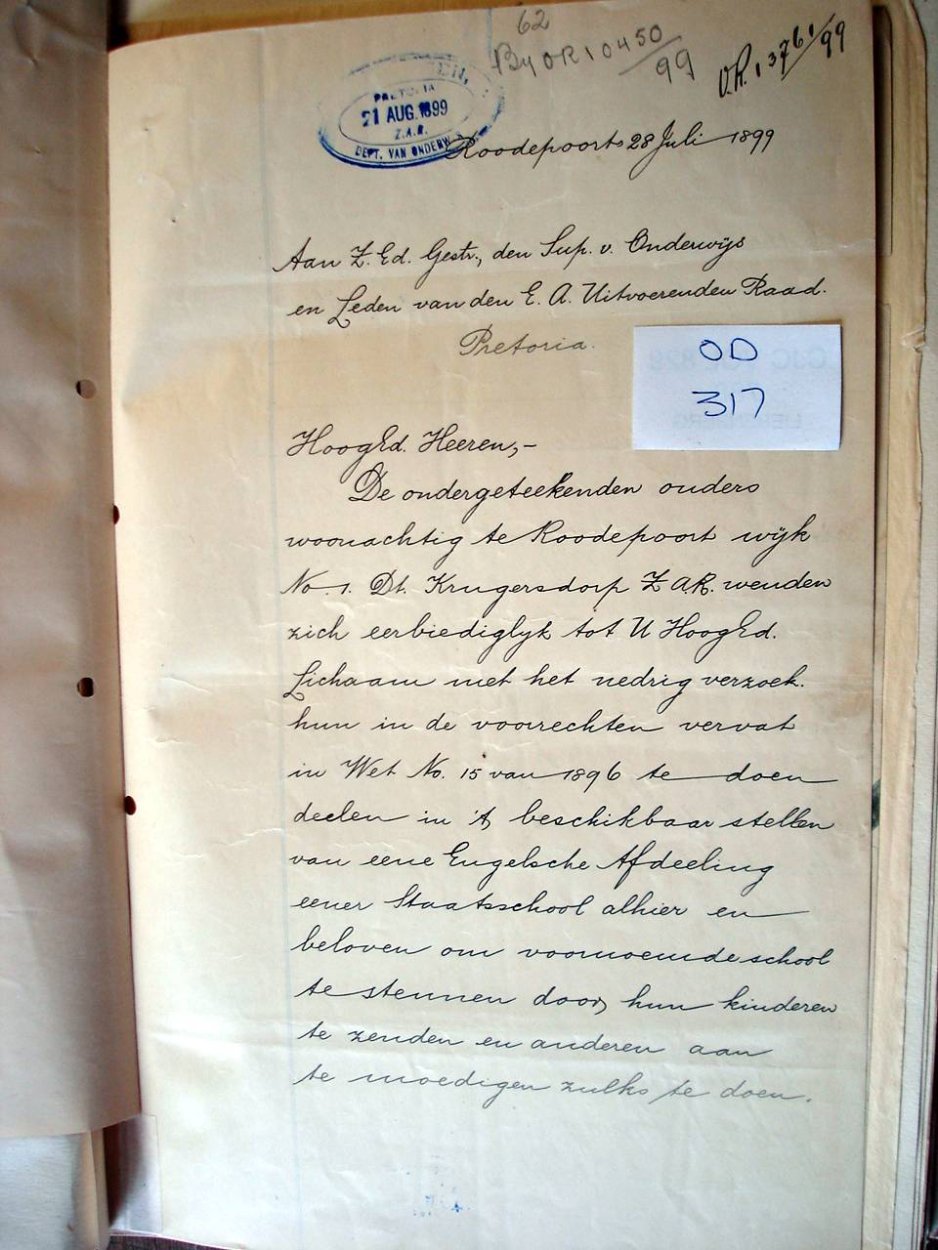 62
By OR 10450/99
O.R. 13761/99
PRETORIA
21 AUG. 1899
Z.A.R.
DEPT. VAN ONDERW
Roodepoort 28 Juli 1899
Aan Z. Ed. Gestr., den Sup. v. Onderwijs
en Leden van den E. A. Uitvoerenden Raad.
Pretoria.
OD
317
HoogEd. Heeren,-
De ondergeteekenden ouders
woonachtig te Roodepoort wijk
No. 1. Dt. Krugersdorp Z.A.R. wenden
zich eerbiediglyk tot U HoogEd.
Lichaam met het nedrig verzoek.
hun in de voorrechten vervat
in Wet No. 15 van 1896 te doen
deelen in 't beschikbaar stellen
van eene Engelsche Afdeeling
eener Staatsschool alhier en
beloven om voornoemde school
te steunen door hun kinderen
te zenden en anderen aan
te moedigen zulks te doen.